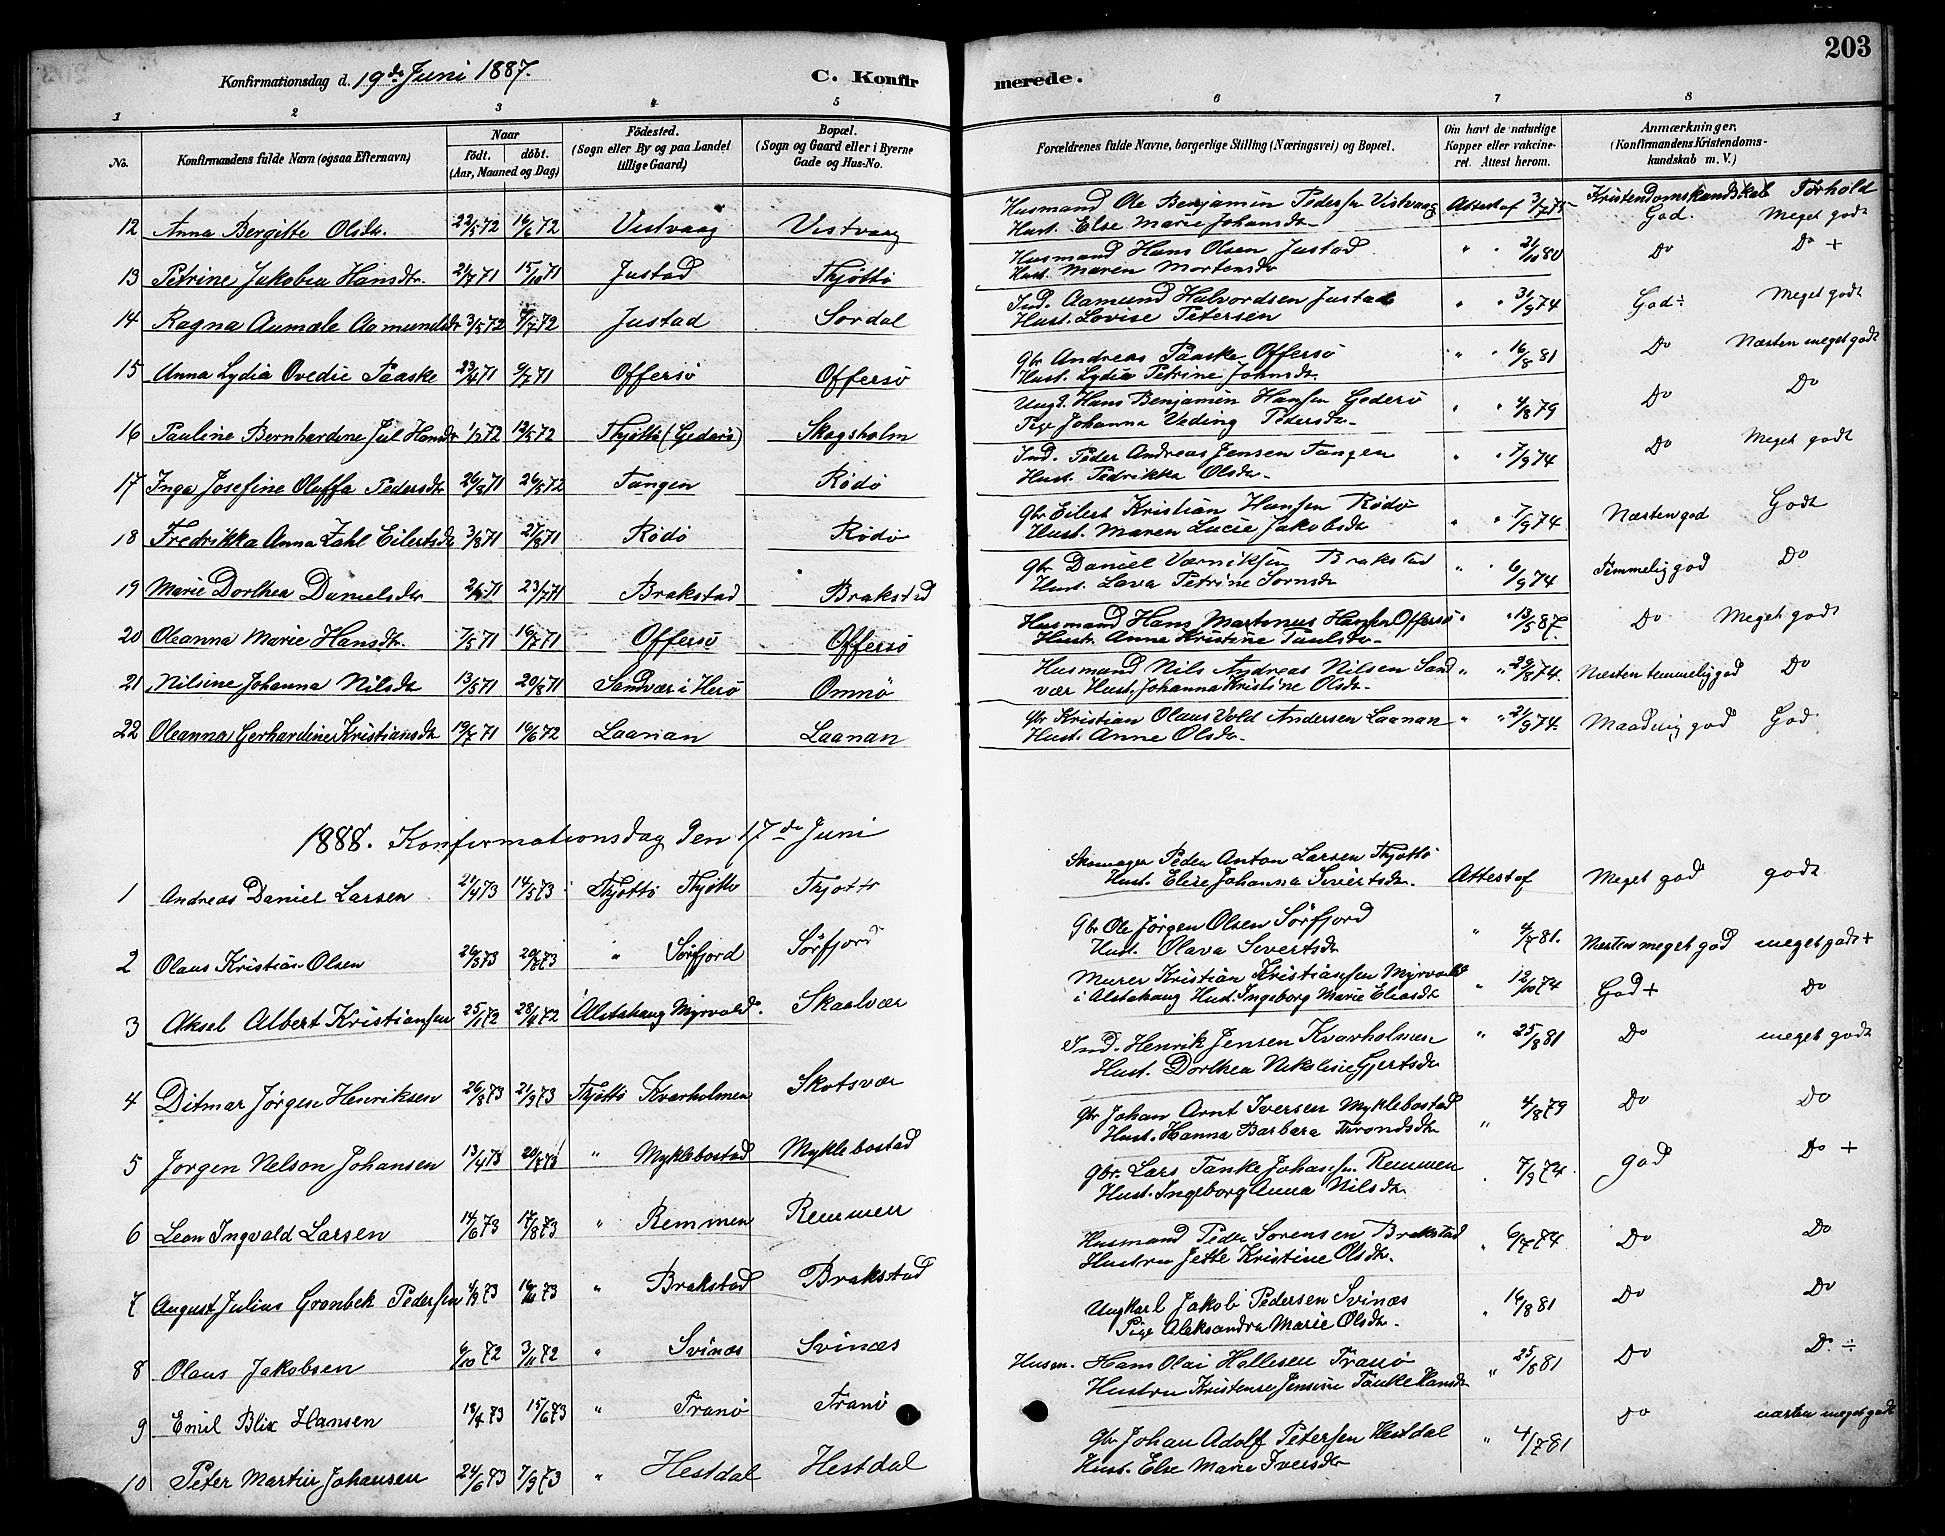 203
Konfirmationsdag d. 19de Juni 1887.
C. Konfirmerede.
1 2 3 4 5 6 7 8
No.
Konfirmandens fulde Navn (ogsaa Efternavn)
Naar
födt. döbt.
(Aar, Maaned og Dag)
Födested.
(Sogn eller By og paa Landet
tillige Gaard)
Bopæl.
(Sogn og Gaard eller i Byerne
Gade og Hus-No.
Forældrenes fulde Navne, borgerlige Stilling (Næringsvei) og Bopæl.
Om havt de naturlige
Kopper eller vakcine-
ret. Attest herom.
Anmærkninger.
(Konfirmandens Kristendoms-
kundskab m. V.)
Kristendomskundskab Forhold
12 Anna Bergitte Olsdr. 22/5 72 16/6 72 Vistvaag Vistvaag Husmand Ole Benjamin Pedersen Vistvaag Attest af God. Meget godt
Hust. Else Marie Johansdr.
13 Petrine Jakobea Hansdr. 21/7 71 15/10 71 Justad Thjöttö Husmand Hans Olsen Justad " " 21/10 80 Do Do +
Hust. Maren Mortensdr
14 Ragna Aumäle Aamundsdr 3/5 72 /7 72 Justad Sördal Ind. Aamund Halvordsen Justad " " 31/9 74 God÷ Meget godt
Hust. Lovise Petersen
15 Anna Lydia Ovedie Paaske 23/4 71 9/7 71 Offersö Offersö Gbr Andreas Paaske Offersö " " 16/8 81 Do Næsten meget godt
Hust. Lydia Petrine Johnsdr.
16 Pauline Bernhardine Jul Hansdr 1/3 72 12/5 72 Thjöttö (Gederö) Skogsholm Ungk. Hans Benjamin Hansen Gederö " " 4/8 79 Do Do
Pige Johanna Veding Pedersdr.
17 Inga Josefine Oluffa Pedersdtr 26/8 71 26/5 72 Tangen Rödö Ind. Peder Andreas Jensen Tangen " " 7/9 74 Do Meget godt
Hust. Pedrikka Olsdr.
18 Fredrikka Anna Zahl Eilertsdr 3/8 71 27/8 71 Rödö Rödö Gbr Eilert Kristian Hansen Rödö " " 7/9 74 Næsten god Godt
Hust. Maren Lucie Jakobsdr
19 Marie Dorthea Danielsdtr 23/7 71 Brakstad Brakstad Gbr Daniel Værniksen Brakstad " " 6/9 74 Temmelig god Do
Hust. Lava Petrine Sörnsdr
20 Oleanna Marie Hansdr. 7/5 71 16/7 71 Offersö Offersö Husmand Hans Martonus Hansen Offersö " " 13/5 87. Do Meget godt
Hust. Anne Kristine Paulsdr.
21 Nilsine Johanna Nilsdr 13/5 71 20/8 71 Sandvær i Herö Omnö Husmand Nils Andreas Nilsen Sand " " 29/8 74. Næsten temmelig god Do
vær Hust. Johanna Kristine Olsdr.
22 Oleanna Gerhardine Kristiansdr 71 16/6 72 Laanan Laanan Gbr Kristian Olaus Vold Andersen Laanan " " 21/9 74. Maadelig god God
Hust. Anne Olsdr.
1888. Konfirmationsdag den 17de Juni
1 Andreas Daniel Larsen 21/4 73 14/5 73 Thjöttö Thjöttö Tjotto Skomager Peder Anton Larsen Thjöttö Attest af Meget god godt
Hust. Elise Johanna Sivertsdr.
2 Olaus Kristian Olsen 26/3 73 20/7 73 " Sörfjord Sörfjord Gbr Ole Jörgen Olsen Sörfjord " 4/7 81. Næsten meget god meget godt+
Hust. Olava Sivertsdr
3 Aksel Albert Kristiansen 25/1 72 28/4 72 Alstahaug Myrvold. Skaalvær Murer Kristian Kristiansen Myrvold " 12/10 74 God+ Do
i Alstahaug Hust. Ingeborg Marie Eliasdr
4 Ditmar Jörgen Henriksen 26/8 73 21/9 73 Thjöttö Kvarholmen Skotsvær Ind. Henrik Jensen Kvarholmen " 25/8 81 Do meget godt
Hust. Dorthea Nikolsie Gjertsdr
5 Jörgen Nelson Johansen 13/4 73 20/7 73 " Myklebostad Myklebostad Gbr Johan Arnt Iversen Myklebostad " 4/8 79 Do Do
Hust. Hanna Barbara Trondsdr
6 Leon Ingvald Larsen 14/6 73 17/8 73 " Remmen Remmen Gbr. Lars Tanke Johansen Remmen . 7/9 74 God Do +
Hust. Ingeborg Anna Nilsdr
7 August Julius Grønbek Pedersen 4/9 73 73 " Brakstad Brakstad Husmand Peder Sörensen Brakstad " 6/7 74 Do Do
Hustru Jette Kristine Olsdr.
8 Olaus Jakobsen 6/10 72 3/11 72 " Svinæs Svinæs Ungkarl Jakob Pedersen Svinæs " 16/8 81 Do Do
Pige Aleksandra Marie Olsdr.
9 Emil Blix Hansen 18/4 73 15/6 73 " Tranö Tranö Husm. Hans Olai Hallesen Tranö " 25/8 81 Do Do ÷
Hustru Kristense Jensine Tanke Hansdr
10 Peter Martin Johansen 24/6 73 7/9 73 " Hestdal Hestdal Gbr Johan Adolf Petersen Hestdal " 4/7 81 Do næsten meget godt
Hust. Else Marie Iversdr